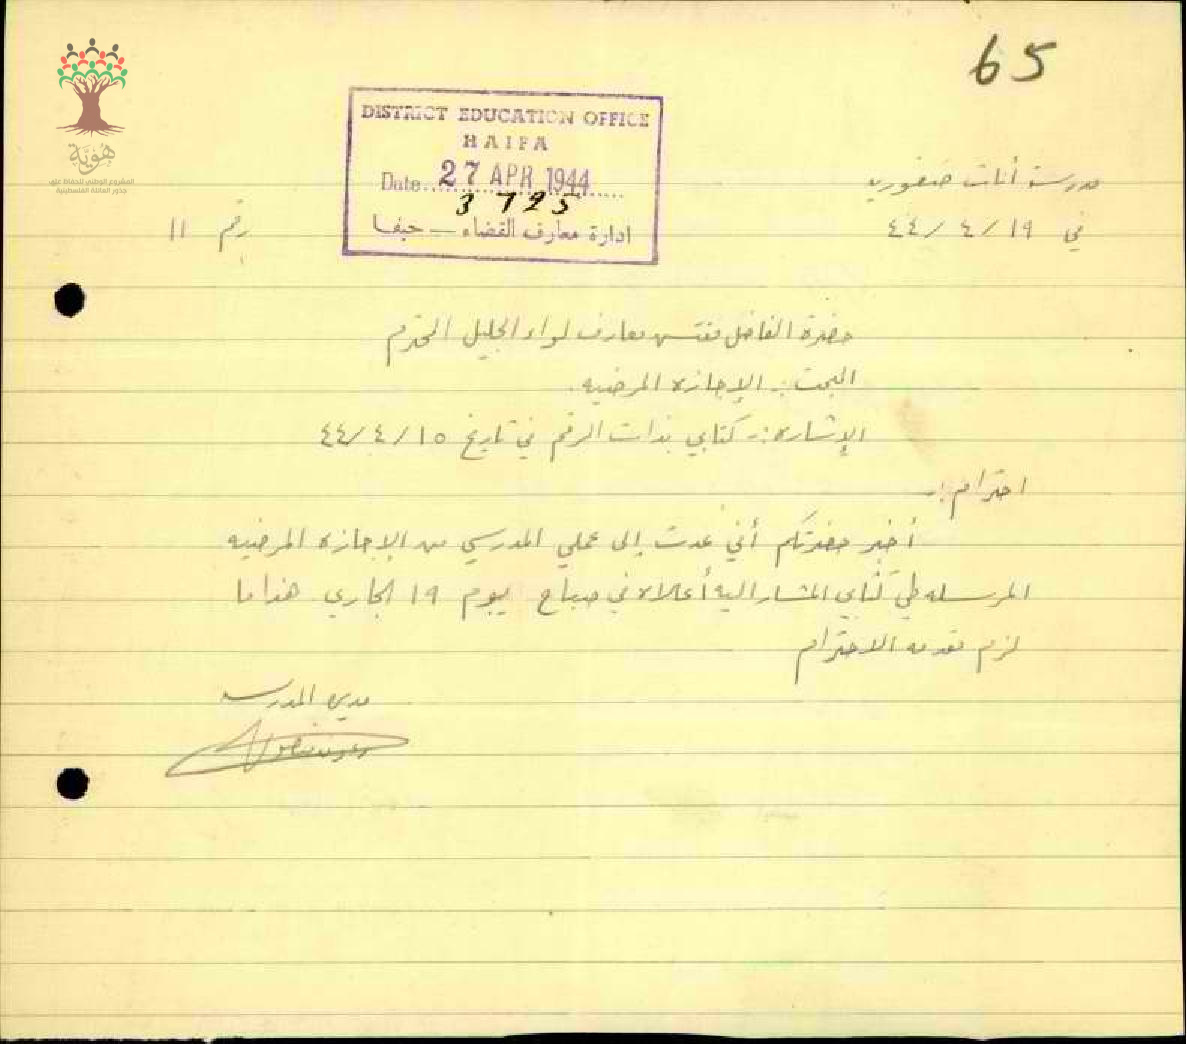 65
هوية
المشروع الوطني للحفاظ على
جذور العائلة الفلسطينية
DISTRICT EDUCATION OFFICE
HAIFA
Date 27 APR 1944
3725
ادارة معارف القضاء — حيفا
مدرسة أناث صفوريه
في ١٩/٤/٤٤
رقم ١١
حضرة الفاضل مفتش معارف لواء الجليل المحترم
البحث :- الإجازه المرضيه.
الإشاره :- كتابي بذات الرقم في تاريخ ١٥/٤/٤٤
احترام :-
أخبر حضرتكم أني عدت إلى عملي المدرسي من الإجازه المرضيه
المرسله طي كتابي المشار اليه أعلاه في صباح يوم ١٩ الجاري. هذا ما
لزم تقدمه الاحترام
مديرة المدرسه